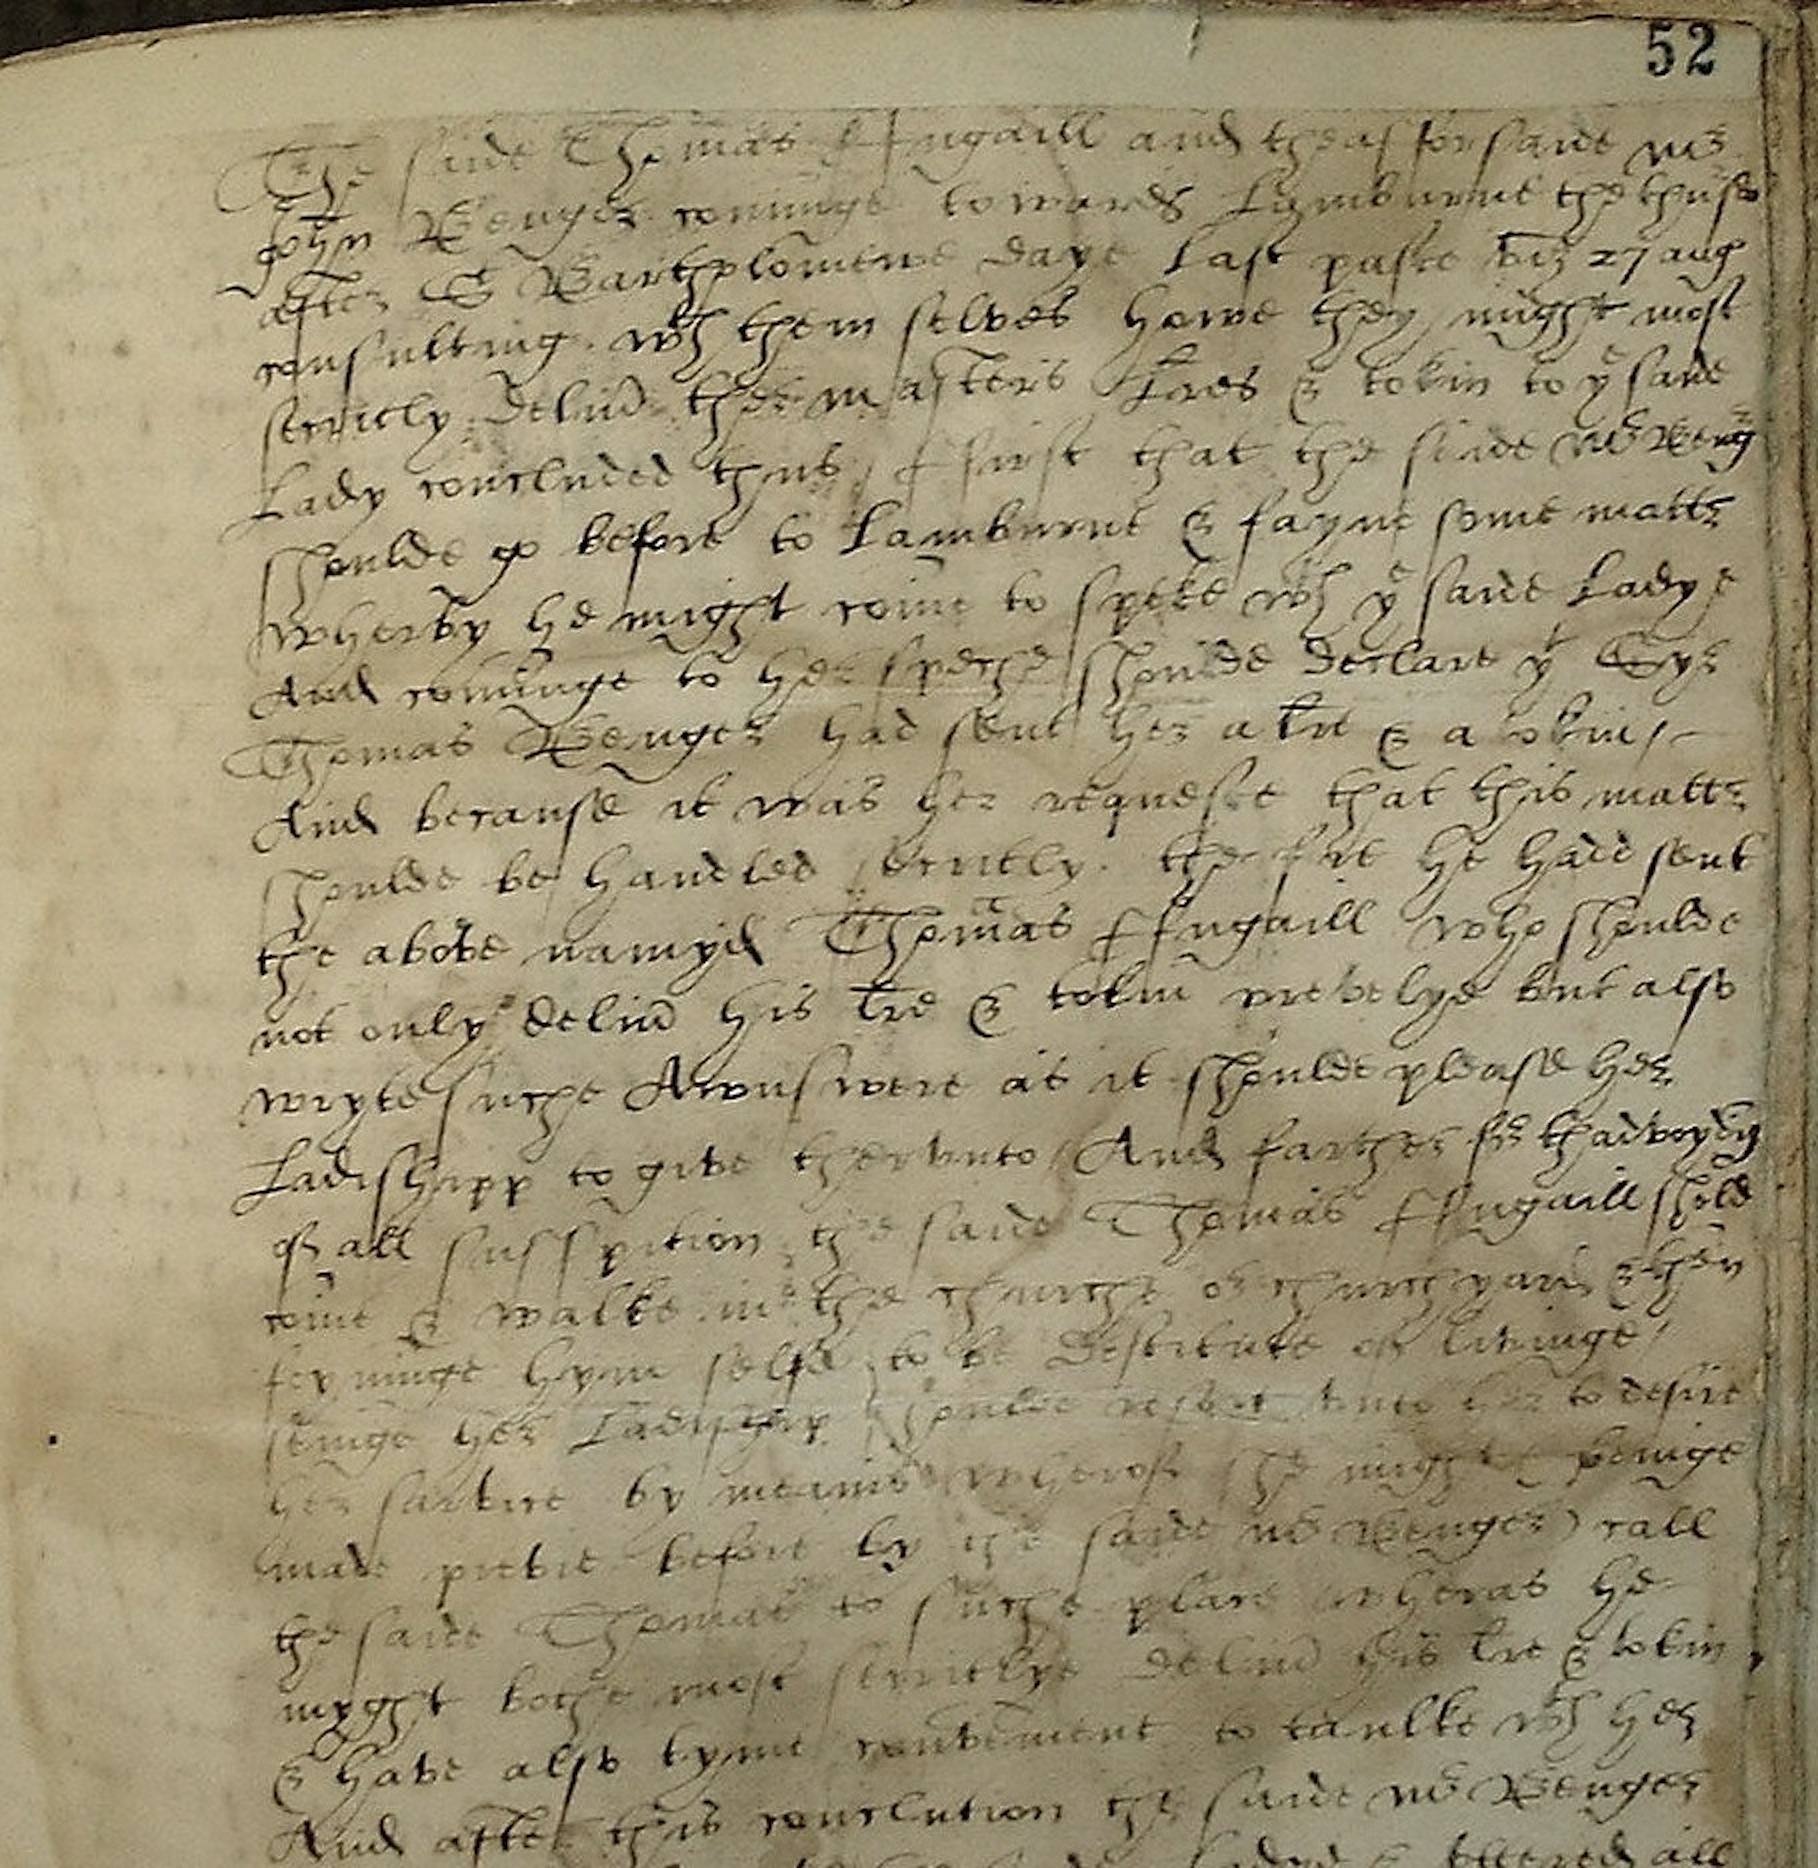 52
The saide Thomas ffugaill and theafforsaide mr
John Benger cominge towards Lamburne the thursd
after S Bartholomewe daye last paste viz 27 aug
consulting wth them selves howe they might most
secritly deliu͛ ther masters lr̃es & tokin to ye saide
Lady concluded thus / ffurst that the saide mr Beng
shoulde go before to Lamburne & fayne some matt͛
wherby he might come to speke wth ye saide Ladye
And cominge to her speche shoulde declare yt Syr
Thomas Benger had sent her a lr̃e & a tokin /
And because it was her requeste that this matt͛
shoulde be handled secritly. the he hadd sent
the above namyd Thomas ffugaill who shoulde
not only deliu͛ his lr̃e & tokin but also
wryte suche Awnswere as it shoulde please her
Ladishipp to give thervnto / And farther for thadvoydyng
of all susspition the saide Thomas ffugaill shold
come & walke in the churche or churchyard & then
feyninge hym selfe to be destitute of livinge /
seinge her Ladishipp shoulde resort vnto her to desire
her sarvice by meanis wherof she might (beinge
made privie before by the saide mr Benger) call
the saide Thomas to suche place wheras he
myght bothe most secritlye deliu͛ his lr̃e & tokin
& have also tyme convenient to taulke wth her
And after this conclution the saide mr Benger
Ladye & vttered all